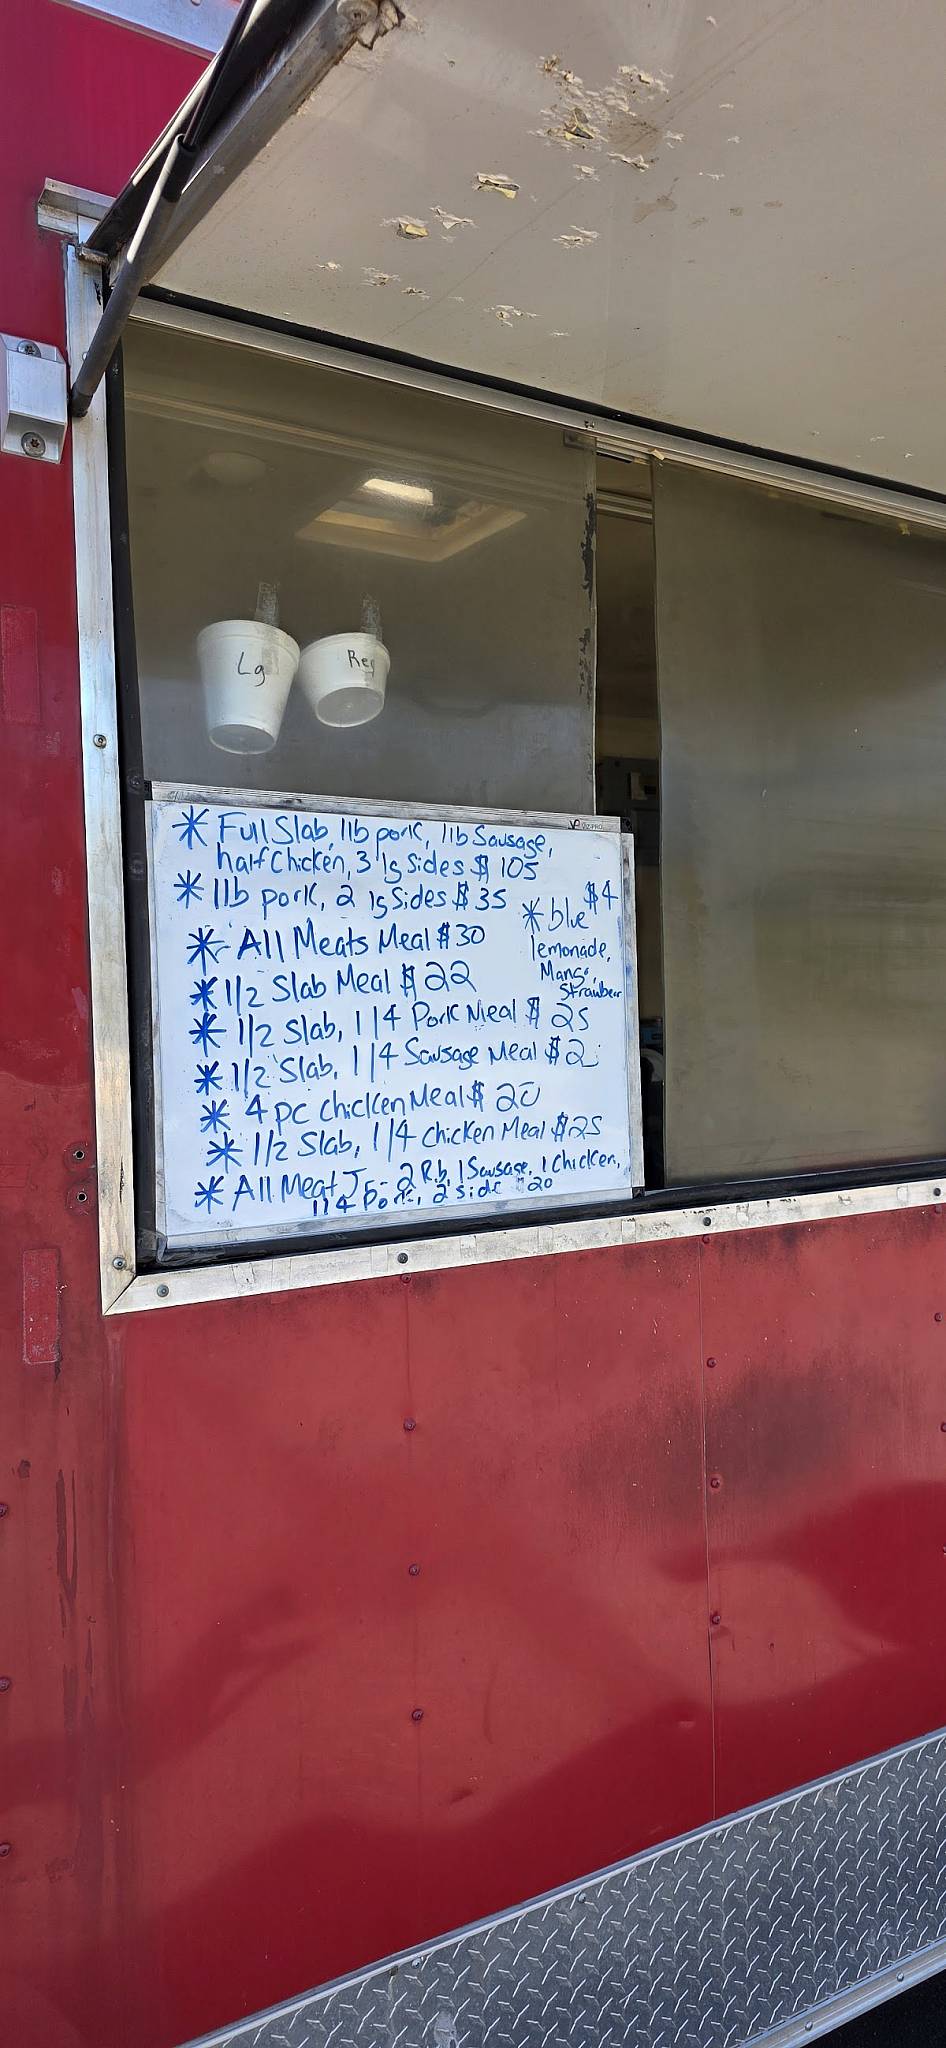 Lg
Reg
* Full Slab, 1lb pork, 1lb Sausage,
half Chicken, 3 lg Sides $ 105
* 1lb pork, 2 lg Sides $ 35
* All Meats Meal $30
* 1/2 Slab Meal $ 22
* 1/2 Slab, 1/4 Pork Meal $ 25
* 1/2 Slab, 1/4 Sausage Meal $ 2
* 4 pc Chicken Meal $ 20
* 1/2 Slab, 1/4 Chicken Meal $25
* All Meat Jr - 2 Rib, 1 Sausage, 1 Chicken,
1/4 Pork, 2 side $20
$4
* blue
lemonade,
Mango,